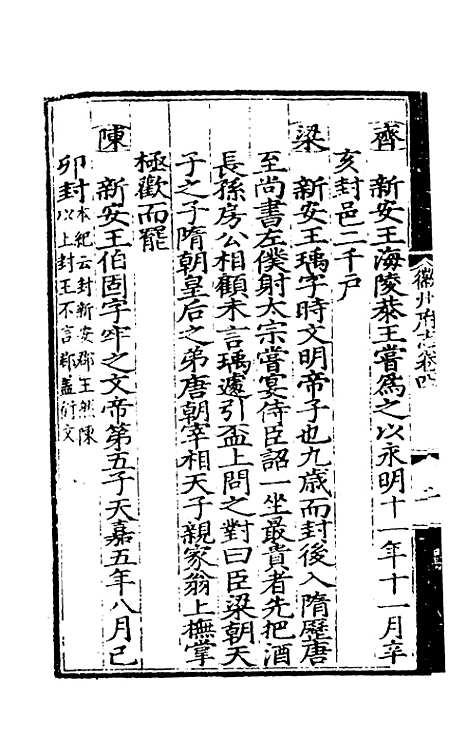 齊
新安王海陵恭王嘗爲之以永明十一年十一月辛
亥封邑二千戶
梁
新安王瑀字時文明帝子也九歲而封後入隋歷唐
至尚書左僕射太宗嘗宴侍臣詔一坐最貴者先把酒
長孫房公相顧未言瑀遽引盃上問之對曰臣梁朝天
子之子隋朝皇后之弟唐朝宰相天子親家翁上撫掌
極歡而罷
陳
新安王伯固字牢之文帝第五子天嘉五年八月已
卯封本紀云封新安郡王然陳
以上封王不言郡蓋衍文
徽州府志卷四